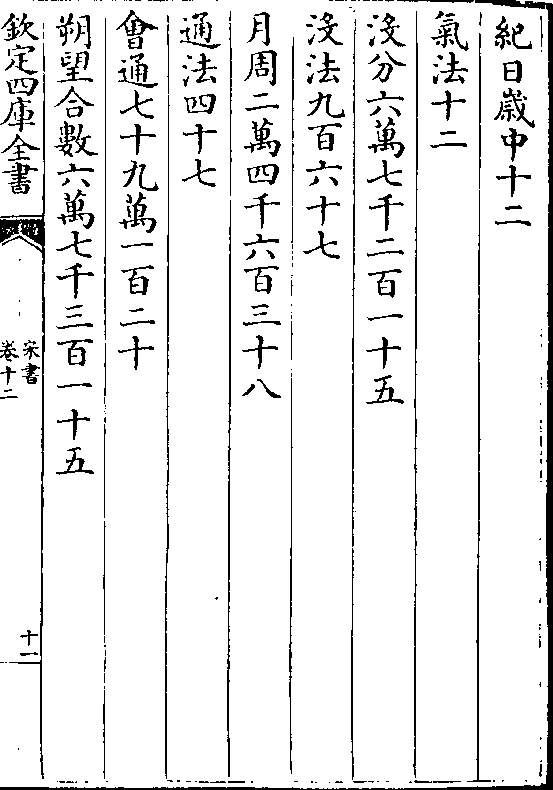 紀日歳中十二
氣法十二
沒分六萬七千二百一十五
沒法九百六十七
月周二萬四千六百三十八
通法四十七
會通七十九萬一百二十
朔望合數六萬七千三百一十五
欽定四庫全書
宋書
卷十二
十一